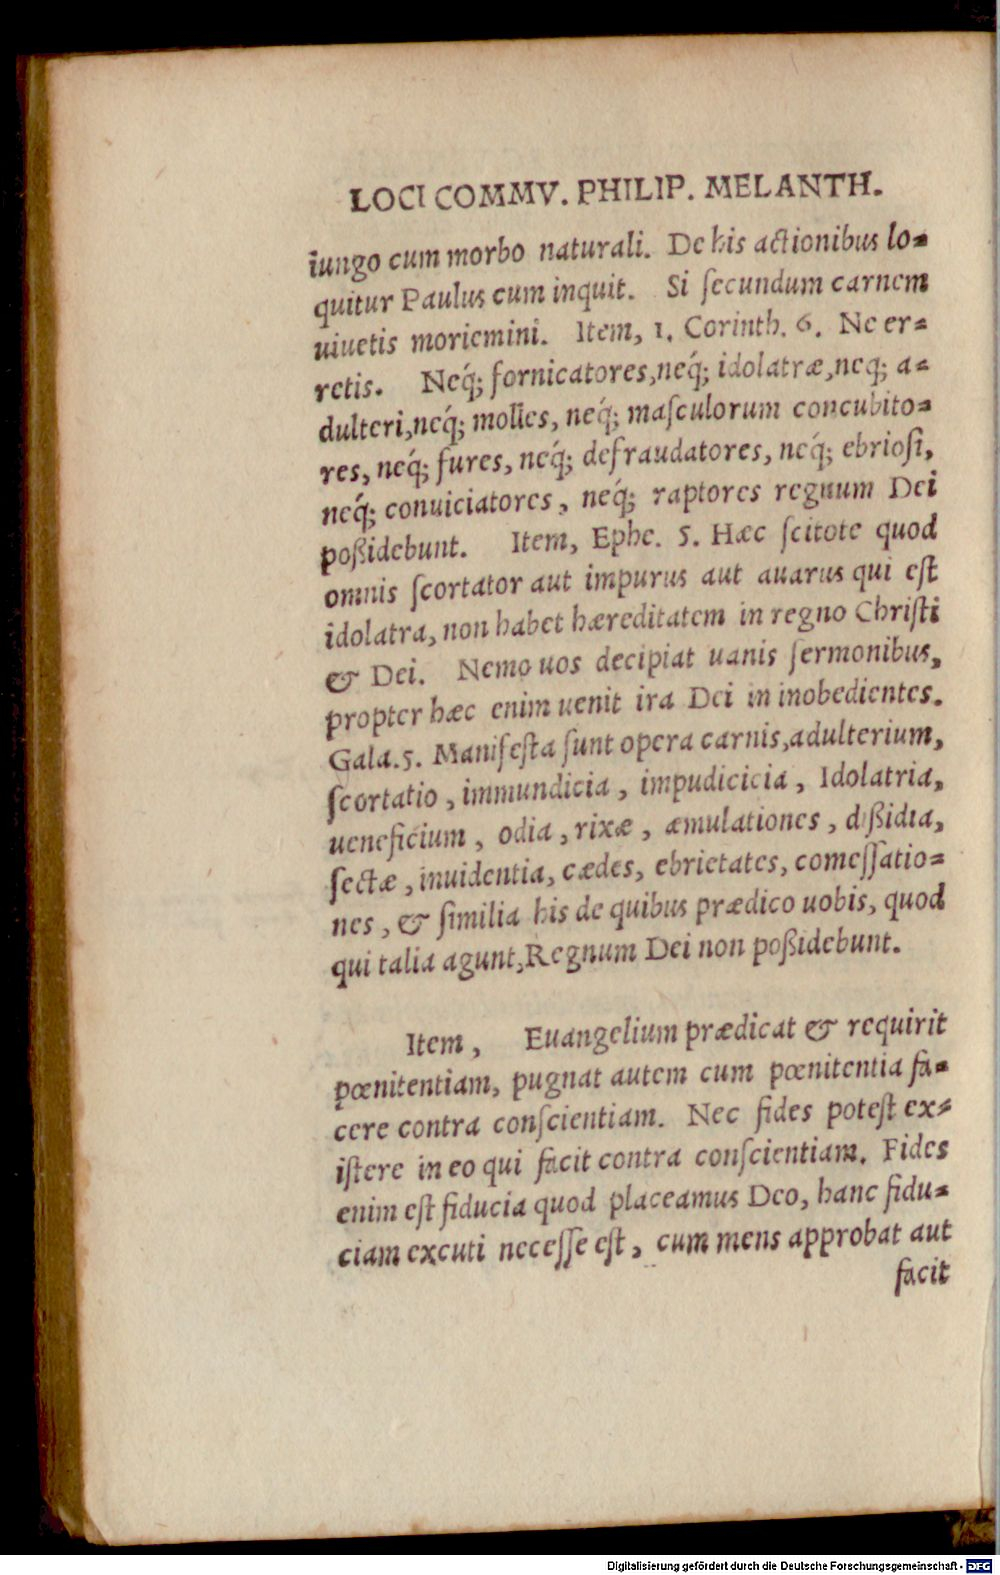 LOCI COMMV. PHILIP. MELANTH.
iungo cum morbo naturali. De his actionibus lo=
quitur Paulus cum inquit. Si ſecundum carnem
uiuetis moriemini. Item, 1. Corinth. 6. Ne er=
retis. Neq́; fornicatores, neq́; idolatræ, neq; a=
dulteri, neq́; molles, neq́; maſculorum concubito=
res, neq́; fures, neq́; defraudatores, neq́; ebrioſi,
neq́; conuiciatores, neq́; raptores regnum Dei
poßidebunt. Item, Ephe. 5. Hæc ſcitote quod
omnis ſcortator aut impurus aut auarus qui eſt
idolatra, non habet hæreditatem in regno Chriſti
& Dei. Nemo uos decipiat uanis ſermonibus,
propter hæc enim uenit ira Dei in inobedientes.
Gala. 5. Manifeſta ſunt opera carnis, adulterium,
ſcortatio, immundicia, impudicicia, Idolatria,
ueneficium, odia, rixæ, æmulationes, dißidia,
ſectæ, inuidentia, cædes, ebrietates, comeſſatio=
nes, & ſimilia his de quibus prædico uobis, quod
qui talia agunt, Regnum Dei non poßidebunt.
Item, Euangelium prædicat & requirit
pœnitentiam, pugnat autem cum pœnitentia fa=
cere contra conſcientiam. Nec fides poteſt ex=
iſtere in eo qui facit contra conſcientiam. Fides
enim eſt fiducia quod placeamus Deo, hanc fidu=
ciam excuti neceſſe eſt, cum mens approbat aut
facit
Digitalisierung gefördert durch die Deutsche Forschungsgemeinschaft - DFG